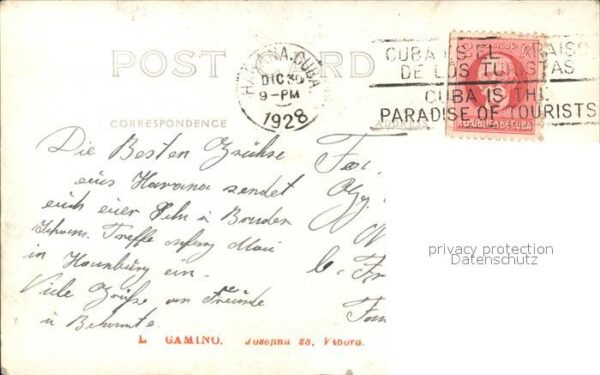 POST CARD
HABANA, CUBA
DIC 30
9-PM
1928
CUBA ES EL PARAISO
DE LOS TURISTAS
CUBA IS THE
PARADISE OF TOURISTS
REPUBLICA DE CUBA
CORRESPONDENCE
ADDRESS
Die Besten Grühse
aus Havana sendet
euch euer Sohn u Bruder
Treffe anfang Mai
in Hamburg ein.
Viele Grüße an Freunde
u Bekannte.
Fa
L. GAMINO. Josefina 28, Vibora.
privacy protection
Datenschutz